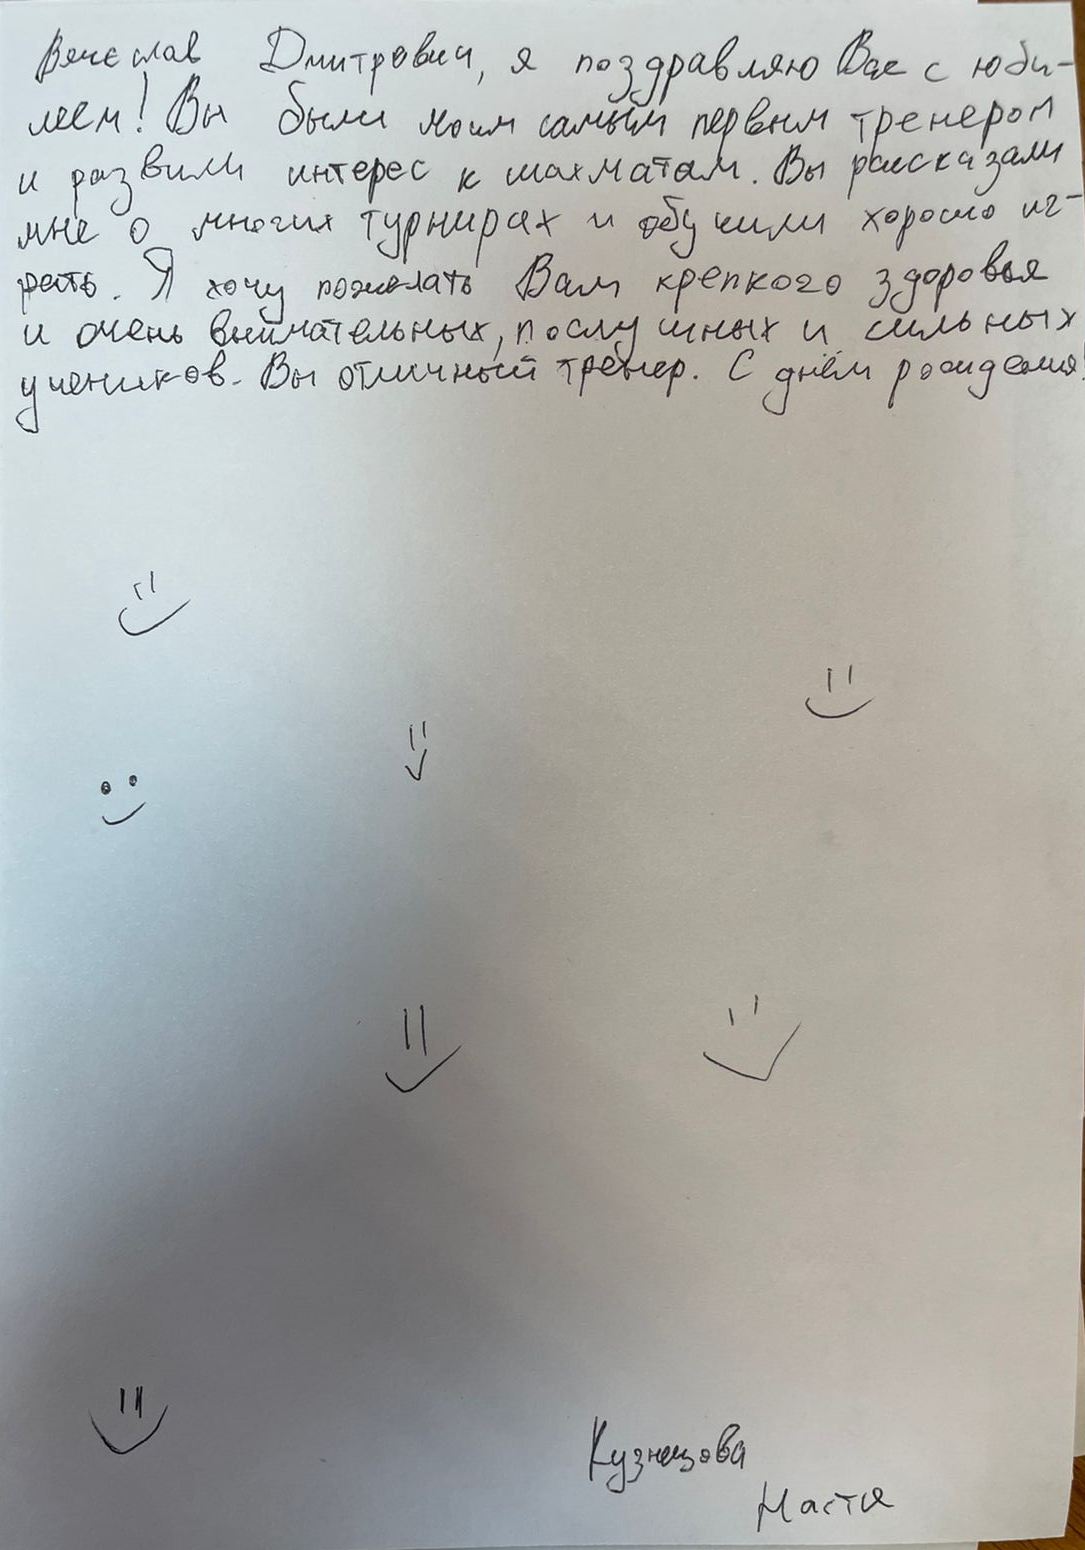 Вячеслав Дмитрович, я поздравляю Вас с юби-
леем! Вы были моим самым первым тренером
и развили интерес к шахматам. Вы рассказали
мне о многих турнирах и обучили хорошо иг-
рать. Я хочу пожелать Вам крепкого здоровья
и очень внимательных, послушных и сильных
учеников. Вы отличный тренер. С днём рождения!
Кузнецова
Настя